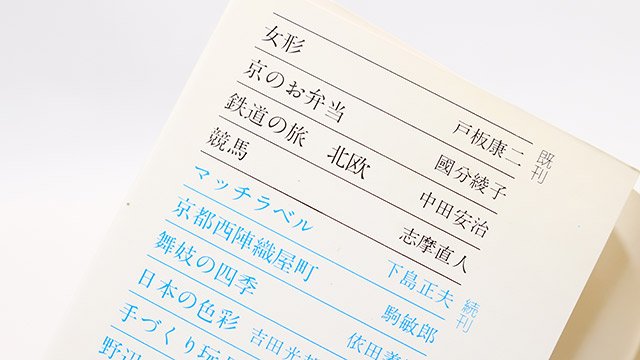 女形 戸板康二 既刊
京のお弁当 國分綾子
鉄道の旅 北欧 中田安治
競馬 志摩直人
マッチラベル 下島正夫 続刊
京都西陣織屋町 駒敏郎
舞妓の四季 依田義
日本の色彩 吉田光
手づくり玩
野辺